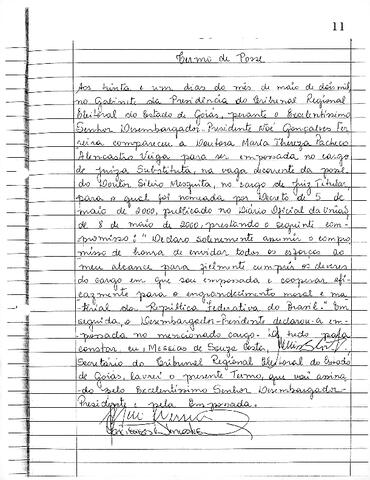 11
Termo de Posse
Aos trinta e um dias do mês de maio de dois mil,
no Gabinete da Presidência do Tribunal Regional
Eleitoral do Estado de Goiás, perante o Excelentíssimo
Senhor Desembargador-Presidente Noé Gonçalves Fer
reira compareceu a Doutora Maria Thereza Pacheco
Alencastro Veiga para ser empossada no cargo
de Juíza Substituta, na vaga decorrente da posse
do Doutor Silvio Mesquita, no cargo de Juiz Titular,
para o qual foi nomeada por Decreto de 5 de
maio de 2000, publicado no Diário Oficial da União
de 8 de maio de 2000, prestando o seguinte com-
promisso: "Declaro solenemente assumir o compro
misso de honra de envidar todos os esforços ao
meu alcance para fielmente cumprir os deveres
do cargo em que sou empossada e cooperar efi-
cazmente para o engrandecimento moral e ma
terial da República Federativa do Brasil." Em
seguida, o Desembargador-Presidente declarou-a em-
possada no mencionado cargo. De tudo, para
constar, eu, Messias de Souza Costa,
Secretário do Tribunal Regional Eleitoral do Estado
de Goiás, lavrei o presente Termo, que vai assina
do pelo Excelentíssimo Senhor Desembargador-
Presidente e pela Empossada.